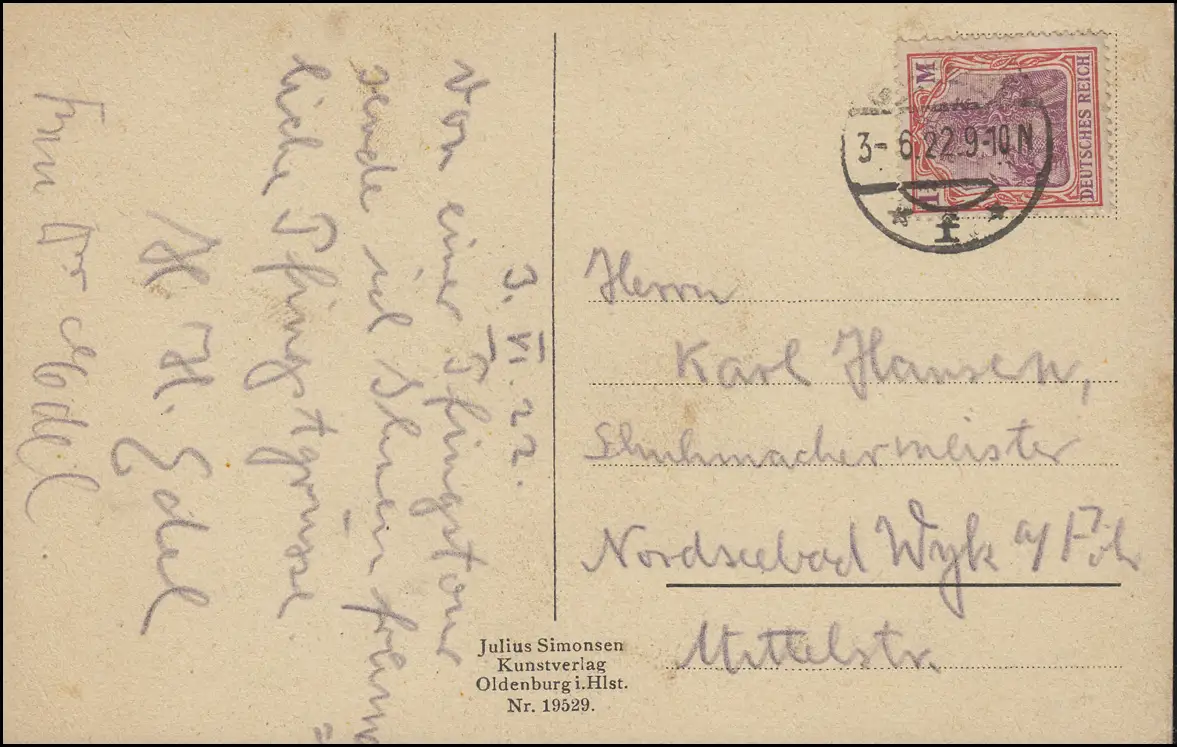 3. VI. 22.
Von einer Pfingsttour
sende ich Ihnen freund=
liche Pfingstgrüsse.
H. H. Edel
Frau Dr Edel.
Julius Simonsen
Kunstverlag
Oldenburg i. Hlst.
Nr. 19529.
1 M
DEUTSCHES REICH
3-6.22.9-10 N
* f *
Herrn
Karl Hansen,
Schuhmachermeister
Nordseebad Wyk a/Föhr
Mittelstr.